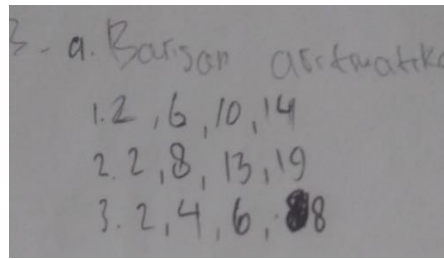 3. a. Barisan aritmatika
1. 2, 6, 10, 14
2. 2, 8, 13, 19
3. 2, 4, 6, 8